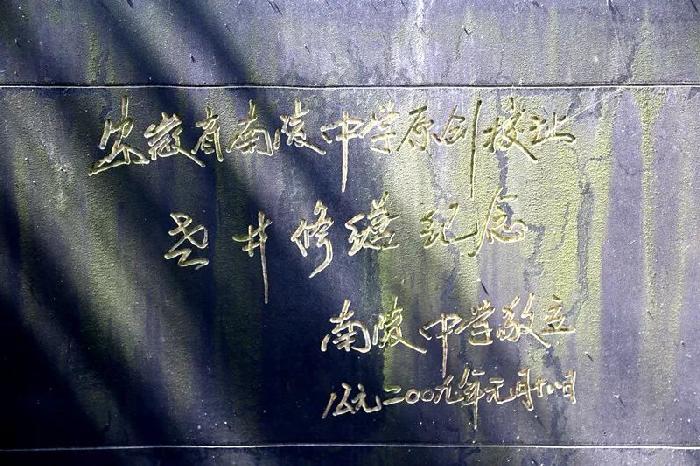 安徽省南陵中学原创校址
老井修缮纪念
南陵中学敬立
公元二00九年元月十八日